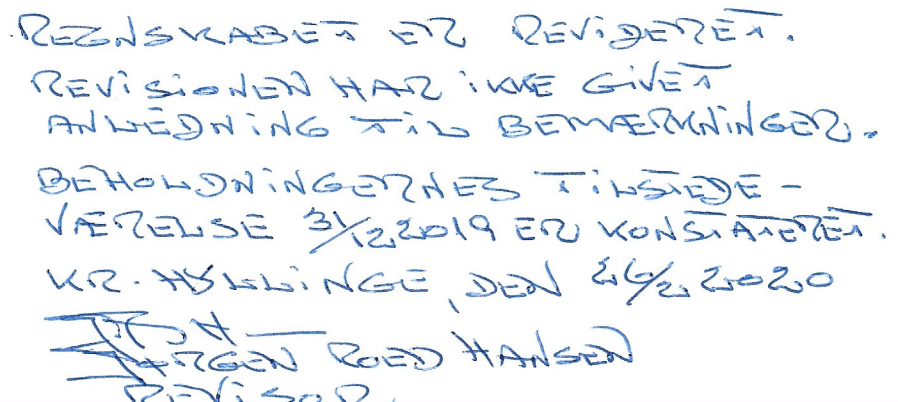 REGNSKABET ER REVIDERET.
REVISIONEN HAR IKKE GIVET
ANLEDNING TIL BEMÆRKNINGER.
BEHOLDNINGERNES TILSTEDE-
VÆRELSE 31/12 2019 ER KONSTATERET.
KR. HYLLINGE, DEN 26/2 2020
JØRGEN ROED HANSEN
REVISOR.